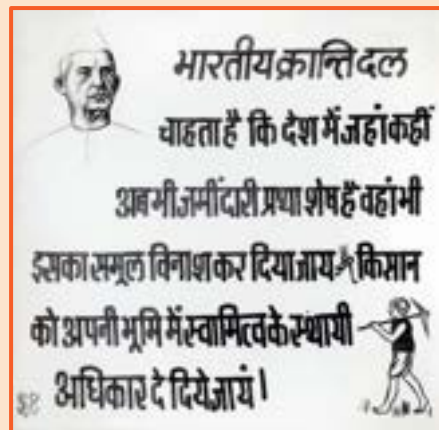 भारतीय क्रान्ति दल
चाहता है कि देश में जहां कहीं
अब भी जमींदारी प्रथा शेष है वहां भी
इसका समूल विनाश कर दिया जाय किसान
को अपनी भूमि में स्वामित्व के स्थायी
अधिकार दे दिये जायं।